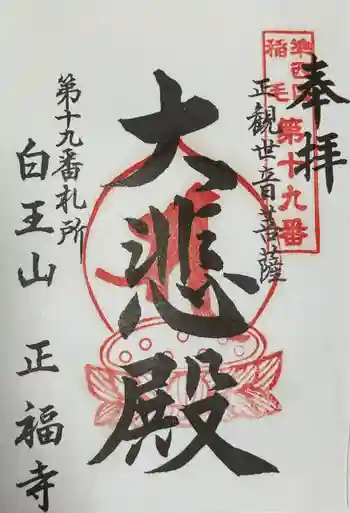 奉拝
準西
稲毛
第十九番
正観世音菩薩
大悲殿
第十九番札所
白王山 正福寺